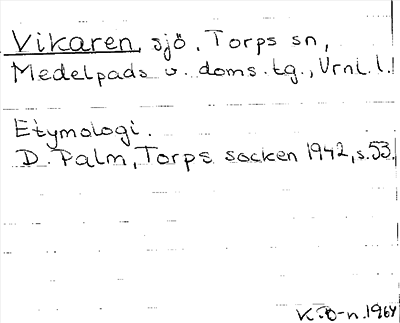 Vikaren, sjö, Torps sn,
Medelpads v. doms.tg., Vrnl. l.
Etymologi.
D. Palm, Torps socken 1942, s. 53.
K.B-n. 1964